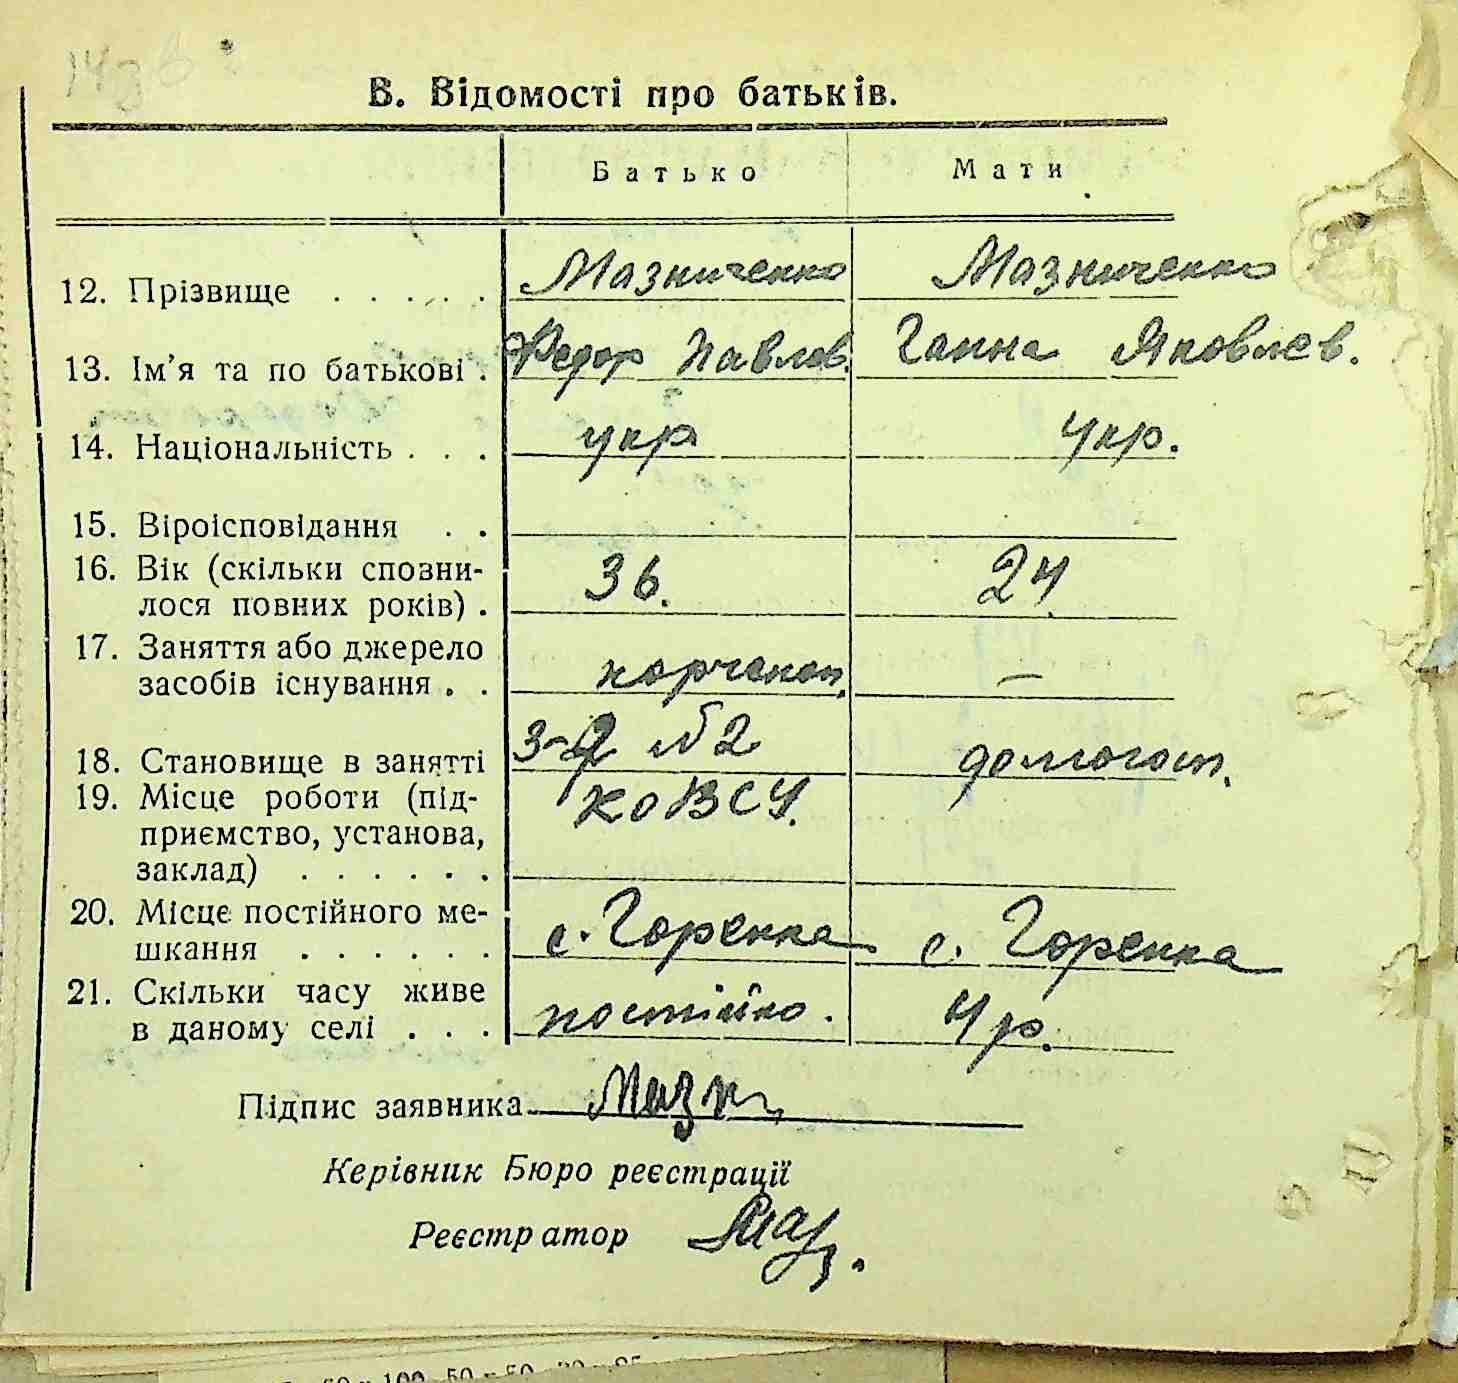 В. Відомості про батьків.
Батько Мати
12. Прізвище . . . . . Мазниченко Мазниченко
13. Ім'я та по батькові . Федор Павлов. Ганна Яковлев.
14. Національність . . . укр укр.
15. Віроісповідання . .
16. Вік (скільки сповни-
лося повних років) . 36. 24
17. Заняття або джерело
засобів існування . . —
18. Становище в занятті з-д №2 домогосп.
19. Місце роботи (під-
приємство, установа,
заклад) . . . . . .
20. Місце постійного ме-
шкання . . . . . . с. Горенка с. Горенка
21. Скільки часу живе
в даному селі . . . постійно. 4 р.
Підпис заявника
Керівник Бюро реєстрації
Реєстратор